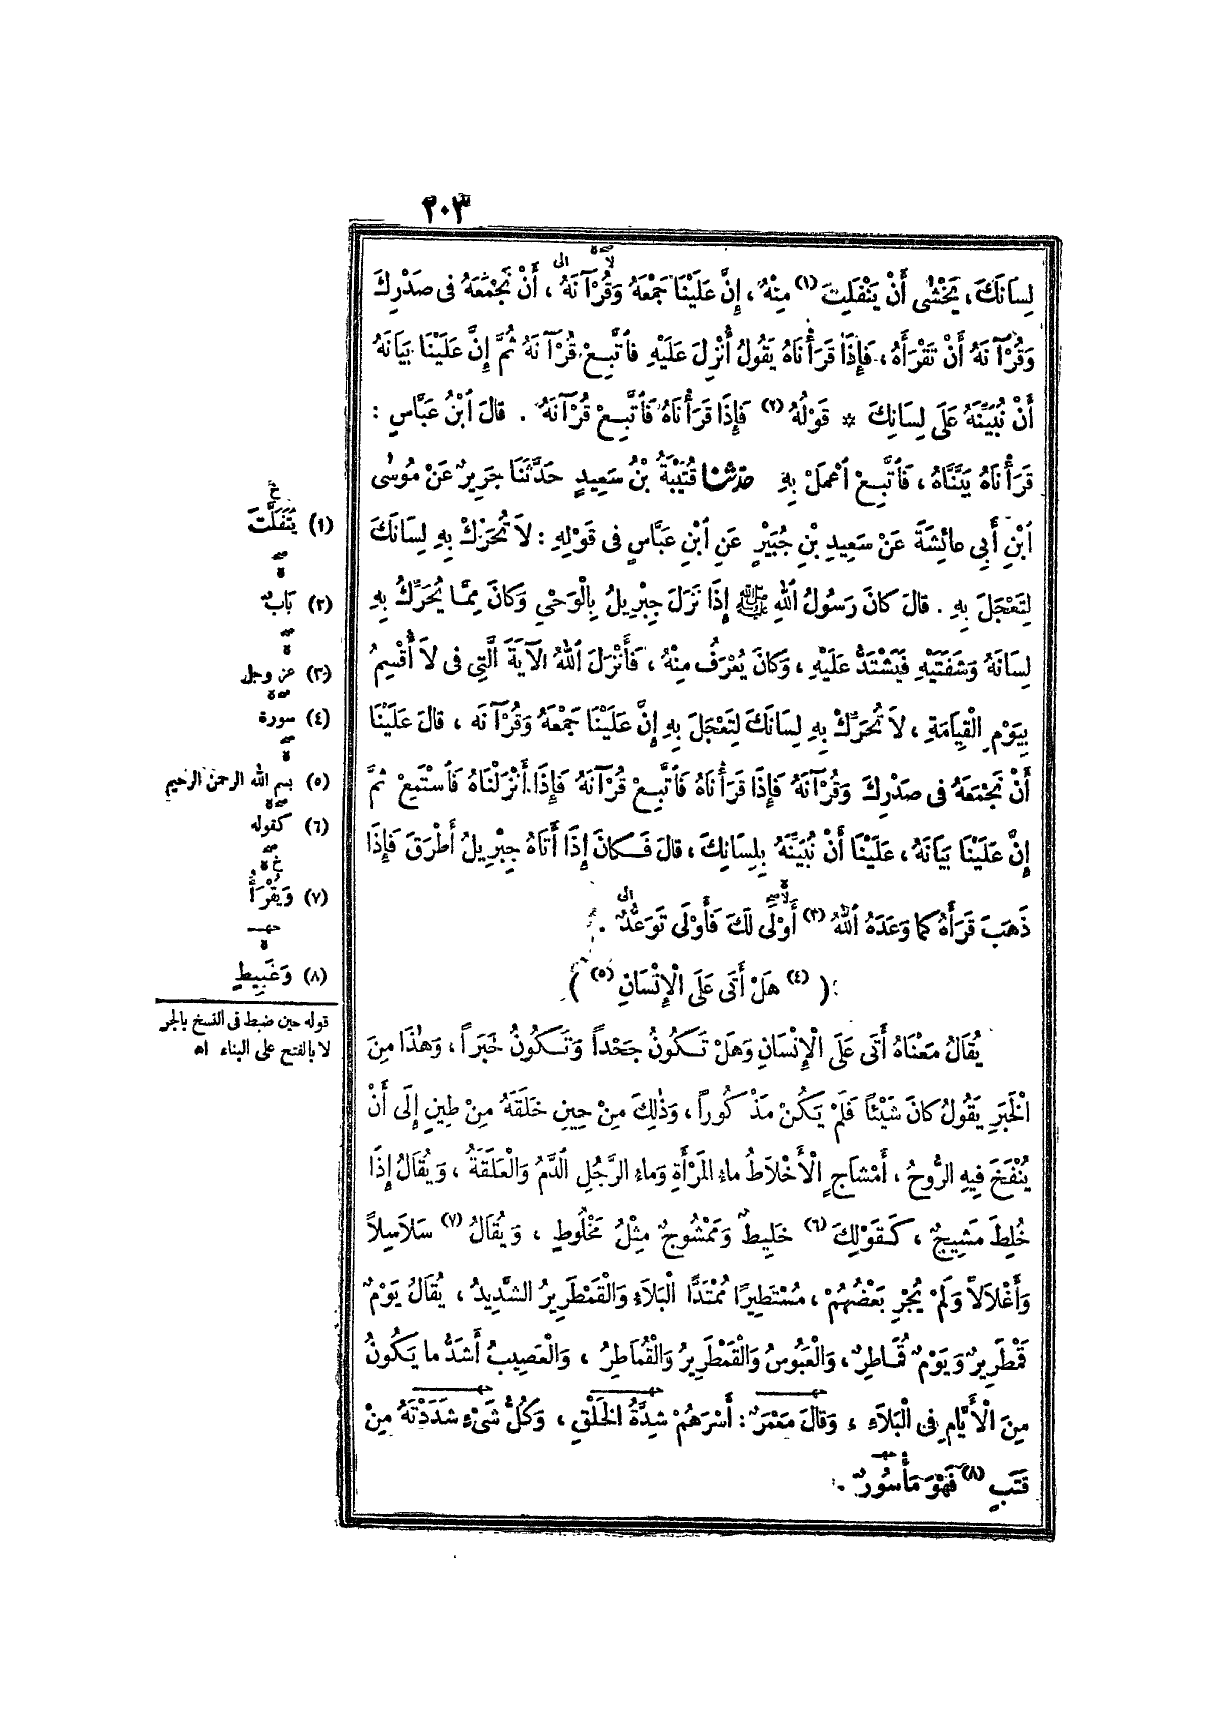 ٢٠٣
لِسَانَكَ ، يَخْشٰى أَنْ يَنْفَلِتَ (١) مِنْهُ ، إِنَّ عَلَيْنَا جَمْعَهُ وَقُرْآنَهُ ، أَنْ نَجْمَعَهُ فى صَدْرِكَ
وَقُرْآنَهُ أَنْ تَقْرَأَهُ ، فَإِذَا قَرَأْنَاهُ يَقُولُ أُنْزِلَ عَلَيْهِ فَاتَّبِعْ قُرْآنَهُ ثُمَّ إِنَّ عَلَيْنَا بَيَانَهُ
أَنْ نُبَيِّنَهُ عَلَى لِسَانِكَ * قَوْلُهُ (٢) فَإِذَا قَرَأْنَاهُ فَاتَّبِعْ قُرْآنَهُ . قالَ ابْنُ عَبَّاسٍ :
قَرَأْنَاهُ بَيَّنَّاهُ ، فَاتَّبِعْ اعْمَلْ بِهِ حدثنا قُتَيْبَةُ بْنُ سَعِيدٍ حَدَّثَنَا جَرِيرٌ عَنْ مُوسٰى
ابْنِ أَبِي عائِشَةَ عَنْ سَعِيدِ بْنِ جُبَيْرٍ عَنِ ابْنِ عَبَّاسٍ فى قَوْلِهِ : لاَ تُحَرِّكْ بِهِ لِسَانَكَ
لِتَعْجَلَ بِهِ . قالَ كانَ رَسُولُ اللهِ ﷺ إِذَا نَزَلَ جِبْرِيلُ بِالْوَحْىِ وَكانَ مِمَّا يُحَرِّكُ بِهِ
لِسَانَهُ وَشَفَتَيْهِ فَيَشْتَدُّ عَلَيْهِ ، وَكانَ يُعْرَفُ مِنْهُ ، فَأَنْزَلَ اللهُ الآيَةَ الَّتِى فى لاَ أُقْسِمُ
بِيَوْمِ الْقِيَامَةِ ، لاَ تُحَرِّكْ بِهِ لِسَانَكَ لِتَعْجَلَ بِهِ إِنَّ عَلَيْنَا جَمْعَهُ وَقُرْآنَه ، قالَ عَلَيْنَا
أَنْ نَجْمَعَهُ فى صَدْرِكَ وَقُرْآنَهُ فَإِذَا قَرَأْنَاهُ فَاتَّبِعْ قُرْآنَهُ فَإِذَا أَنْزَلْنَاهُ فَاسْتَمِعْ ثُمَّ
إِنَّ عَلَيْنَا بَيَانَهُ ، عَلَيْنَا أَنْ نُبَيِّنَهُ بِلِسَانِكَ ، قالَ فَكانَ إِذَا أَتَاهُ جِبْرِيلُ أَطْرَقَ فَإِذَا
ذَهَبَ قَرَأَهُ كما وَعَدَهُ اللهُ (٣) أَوْلَى لَكَ فَأَوْلَى تَوَعُّدٌ .
( (٤) هَلْ أَتَى عَلَى الْإِنْسَانِ (٥) )
يُقَالُ مَعْنَاهُ أَتَى عَلَى الْإِنْسَانِ وَهَلْ تَكُونُ جَحْداً وَتَكُونُ خَبَراً ، وَهٰذَا مِنَ
الْخَبَرِ يَقُولُ كانَ شَيْئاً فَلَمْ يَكُنْ مَذْكُوراً ، وَذٰلِكَ مِنْ حِينِ خَلَقَهُ مِنْ طِينٍ إِلَى أَنْ
يُنْفَخَ فِيهِ الرُّوحُ ، أَمْشَاجٍ الْأَخْلاَطُ ماءِ المَرْأَةِ وَماءِ الرَّجُلِ الدَّمُ وَالْعَلَقَةُ ، وَيُقَالُ إِذَا
خُلِطَ مَشِيجٌ ، كَقَوْلِكَ (٦) خَلِيطٌ وَمَمْشُوجٌ مِثْلُ مَخْلُوطٍ ، وَيُقَالُ (٧) سَلاَسِلاً
وَأَغْلاَلاً وَلَمْ يُجْرِ بَعْضُهُمْ ، مُسْتَطِيرًا مُمْتَدًّا الْبَلاَءِ وَالْقَمْطَرِيرُ الشَّدِيدُ ، يُقَالُ يَوْمٌ
قَمْطَرِيرٌ وَيَوْمٌ قُمَاطِرٌ ، وَالْعَبُوسُ وَالْقَمْطَرِيرُ وَالْقُمَاطِرُ ، وَالْعَصِيبُ أَشَدُّ ما يَكُونُ
مِنَ الْأَيَّامِ فِى الْبَلاَءِ ، وَقالَ مَعْمَرٌ : أَسْرَهُمْ شِدَّةُ الخَلْقِ ، وَكُلُّ شَىْءٍ شَدَدْتَهُ مِنْ
قَتَبٍ (٨) فَهْوَ مَأْسُورٌ .
(١) يَتَفَلَّتَ
(٢) بَابٌ
(٣) عز وجل
(٤) سورة
(٥) بسم الله الرحمن الرحيم
(٦) كقوله
(٧) وَيُقْرَأُ
(٨) وَغَبِيطٍ
قوله حين ضبط فى النسخ بالجر
لا بالفتح على البناء اه